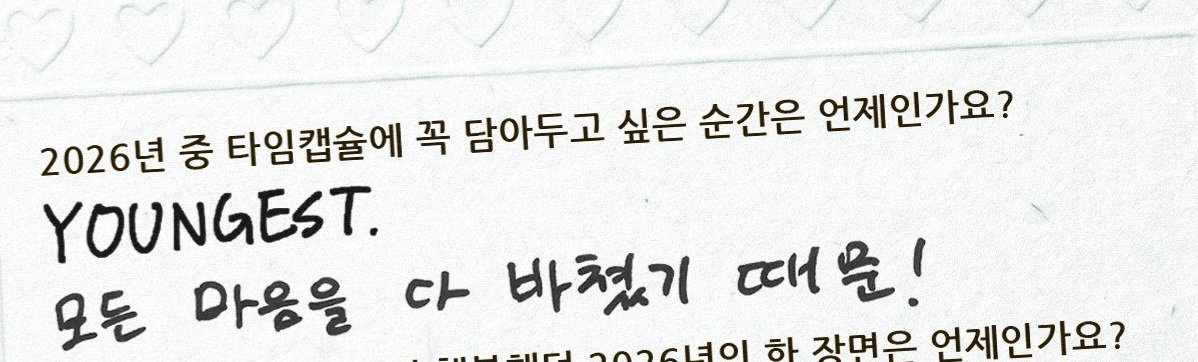 2026년 중 타임캡슐에 꼭 담아두고 싶은 순간은 언제인가요?
YOUNGEST.
모든 마음을 다 바쳤기 때문!
행복했던 2026년의 한 장면은 언제인가요?